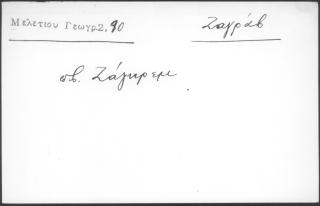 Μελετίου Γεωγρ 2, 90 Ζαγράβ
σβ. Ζάγκρεμ